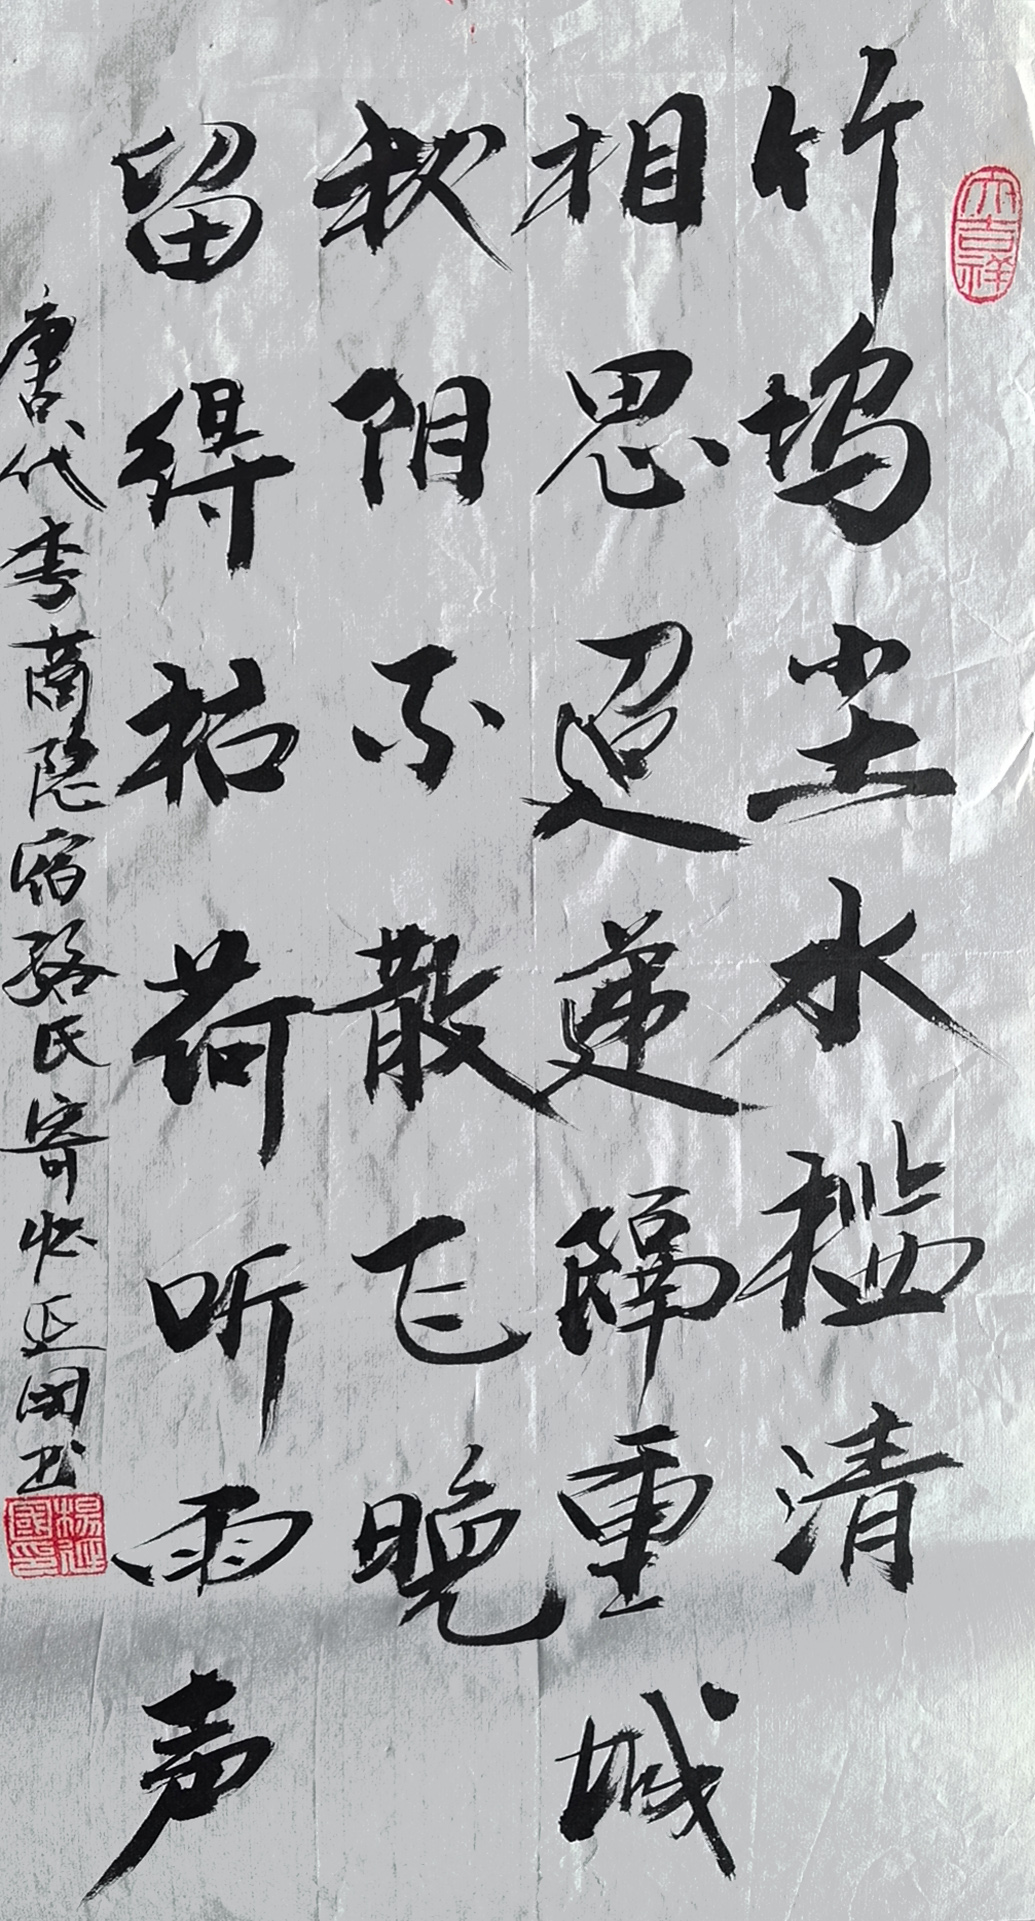 大吉祥
竹坞尘水槛清
相思迢递隔重城
秋阴不散飞晚
留得枯荷听雨声
唐代李商隐宿骆氏寄怀延国书
楊延國印